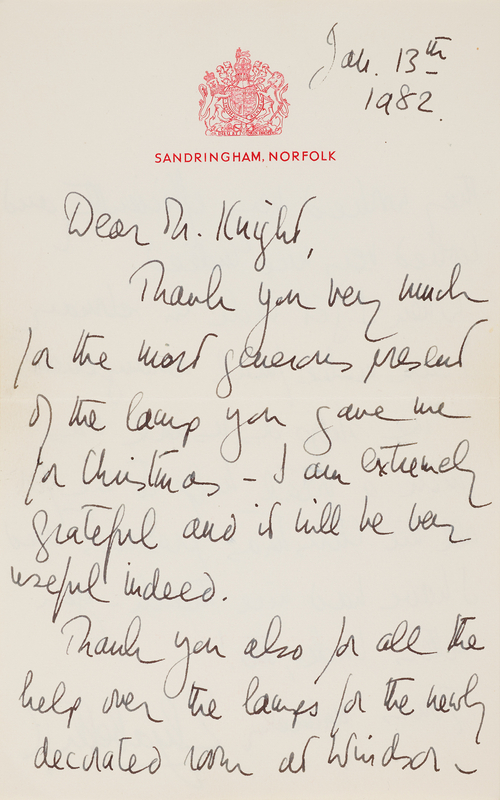 Jan. 13th
1982.
SANDRINGHAM, NORFOLK
Dear Mr. Knight,
Thank you very much
for the most generous present
of the lamp you gave me
for Christmas – I am extremely
grateful and it will be very
useful indeed.
Thank you also for all the
help over the lamps for the newly
decorated room at Windsor –